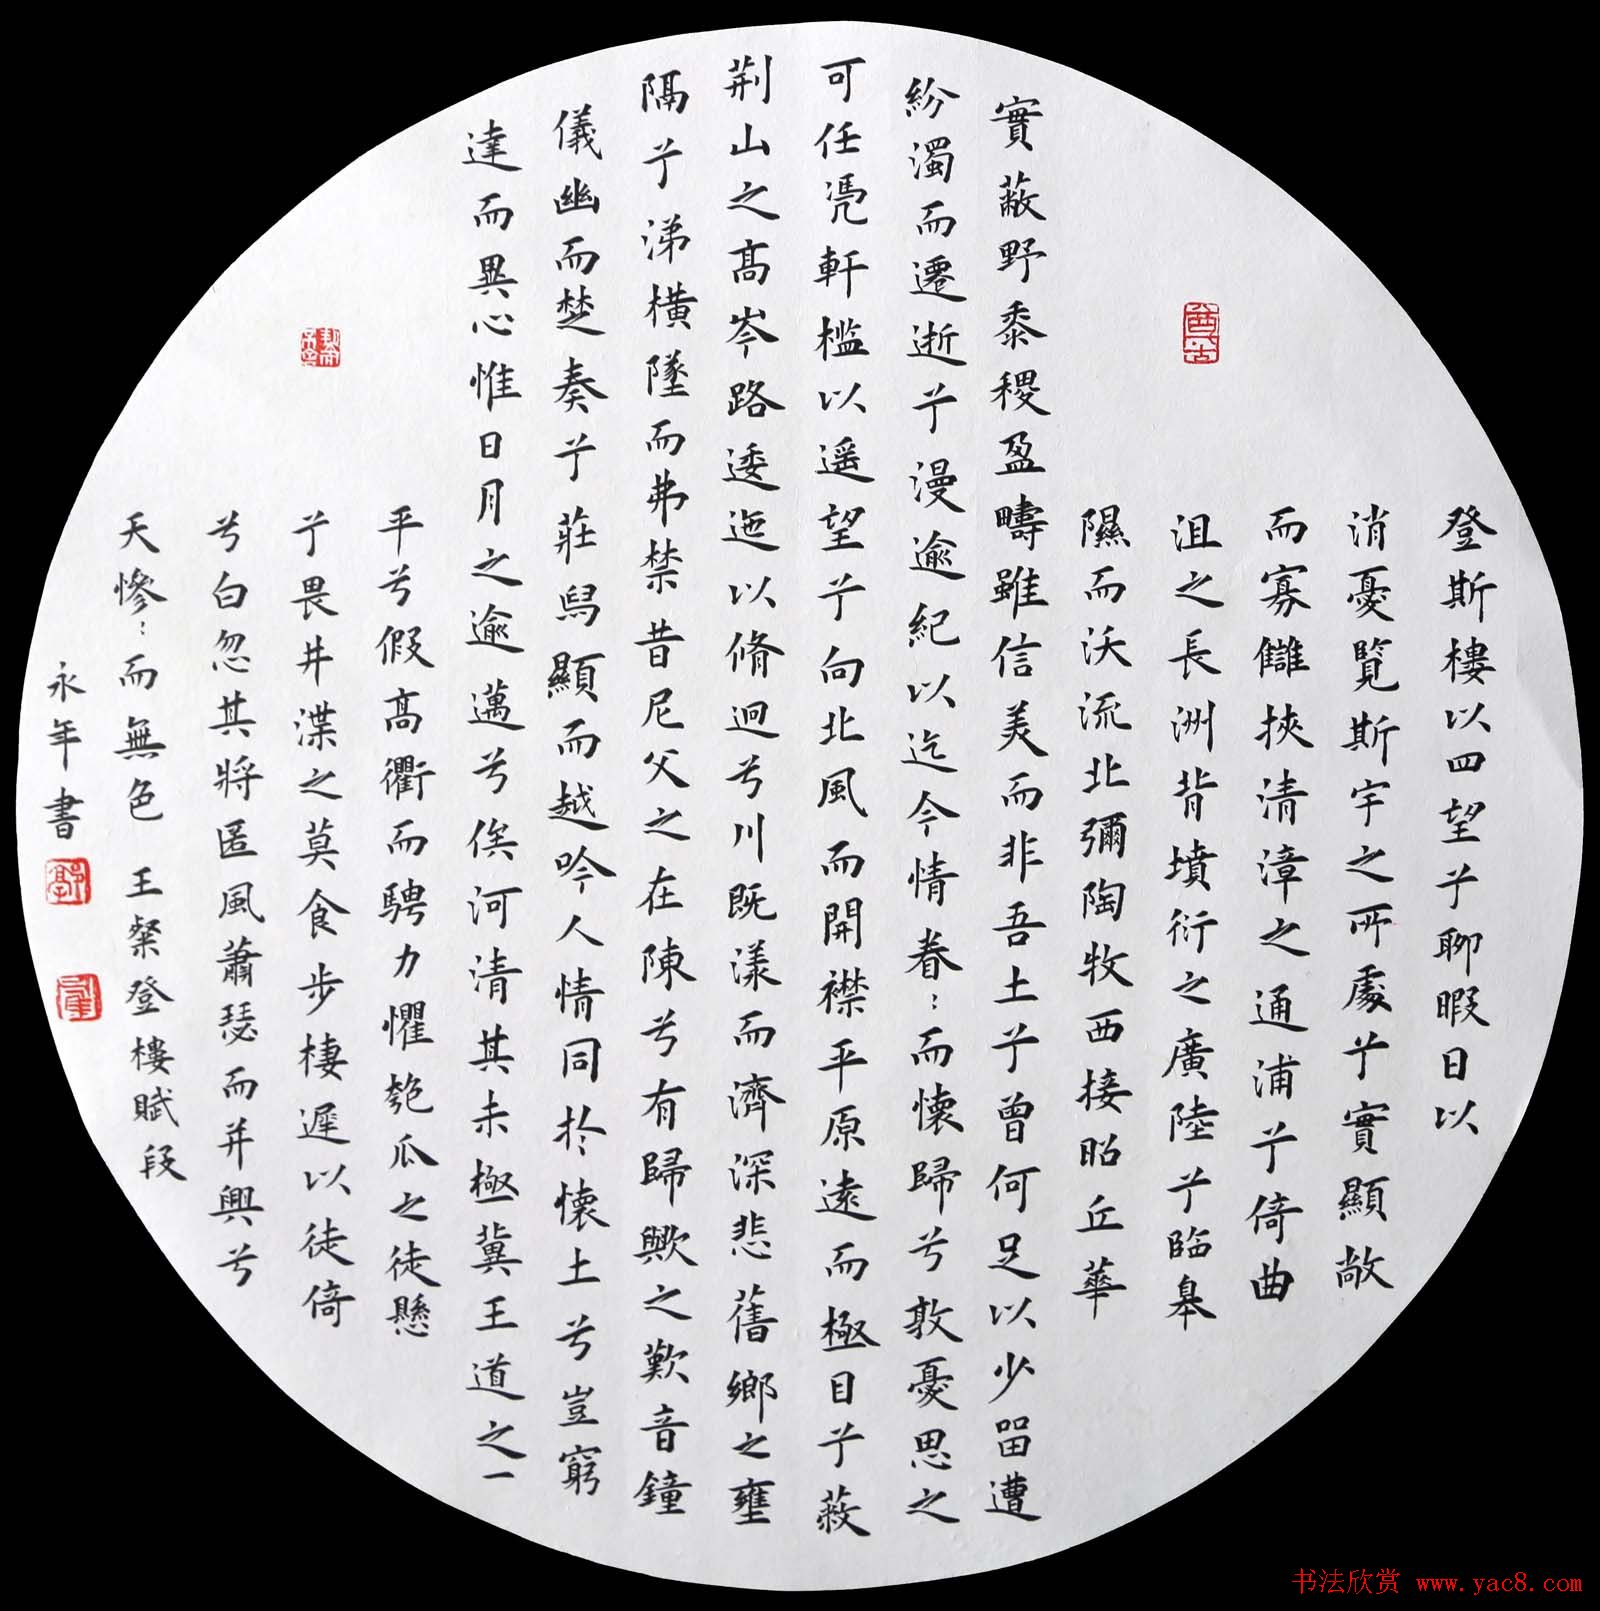 登斯樓以四望兮聊暇日以
消憂覽斯宇之所處兮實顯敞
而寡讎挾清漳之通浦兮倚曲
沮之長洲背墳衍之廣陸兮臨皋
隰而沃流北彌陶牧西接昭丘華
實蔽野黍稷盈疇雖信美而非吾土兮曾何足以少留遭
紛濁而遷逝兮漫逾紀以迄今情眷〻而懷歸兮孰憂思之
可任憑軒檻以遥望兮向北風而開襟平原遠而極目兮蔽
荆山之高岑路逶迤以脩迥兮川既漾而濟深悲舊鄉之壅
隔兮涕橫墜而弗禁昔尼父之在陳兮有歸歟之歎音鐘
儀幽而楚奏兮莊舄顯而越吟人情同於懷土兮豈窮
達而異心惟日月之逾邁兮俟河清其未極冀王道之一
平兮假高衢而騁力懼匏瓜之徒懸
兮畏井渫之莫食步棲遲以徙倚
兮白忽其將匿風蕭瑟而并興兮
天慘〻而無色 王粲登樓賦段
永年書
书法欣赏 www.yac8.com